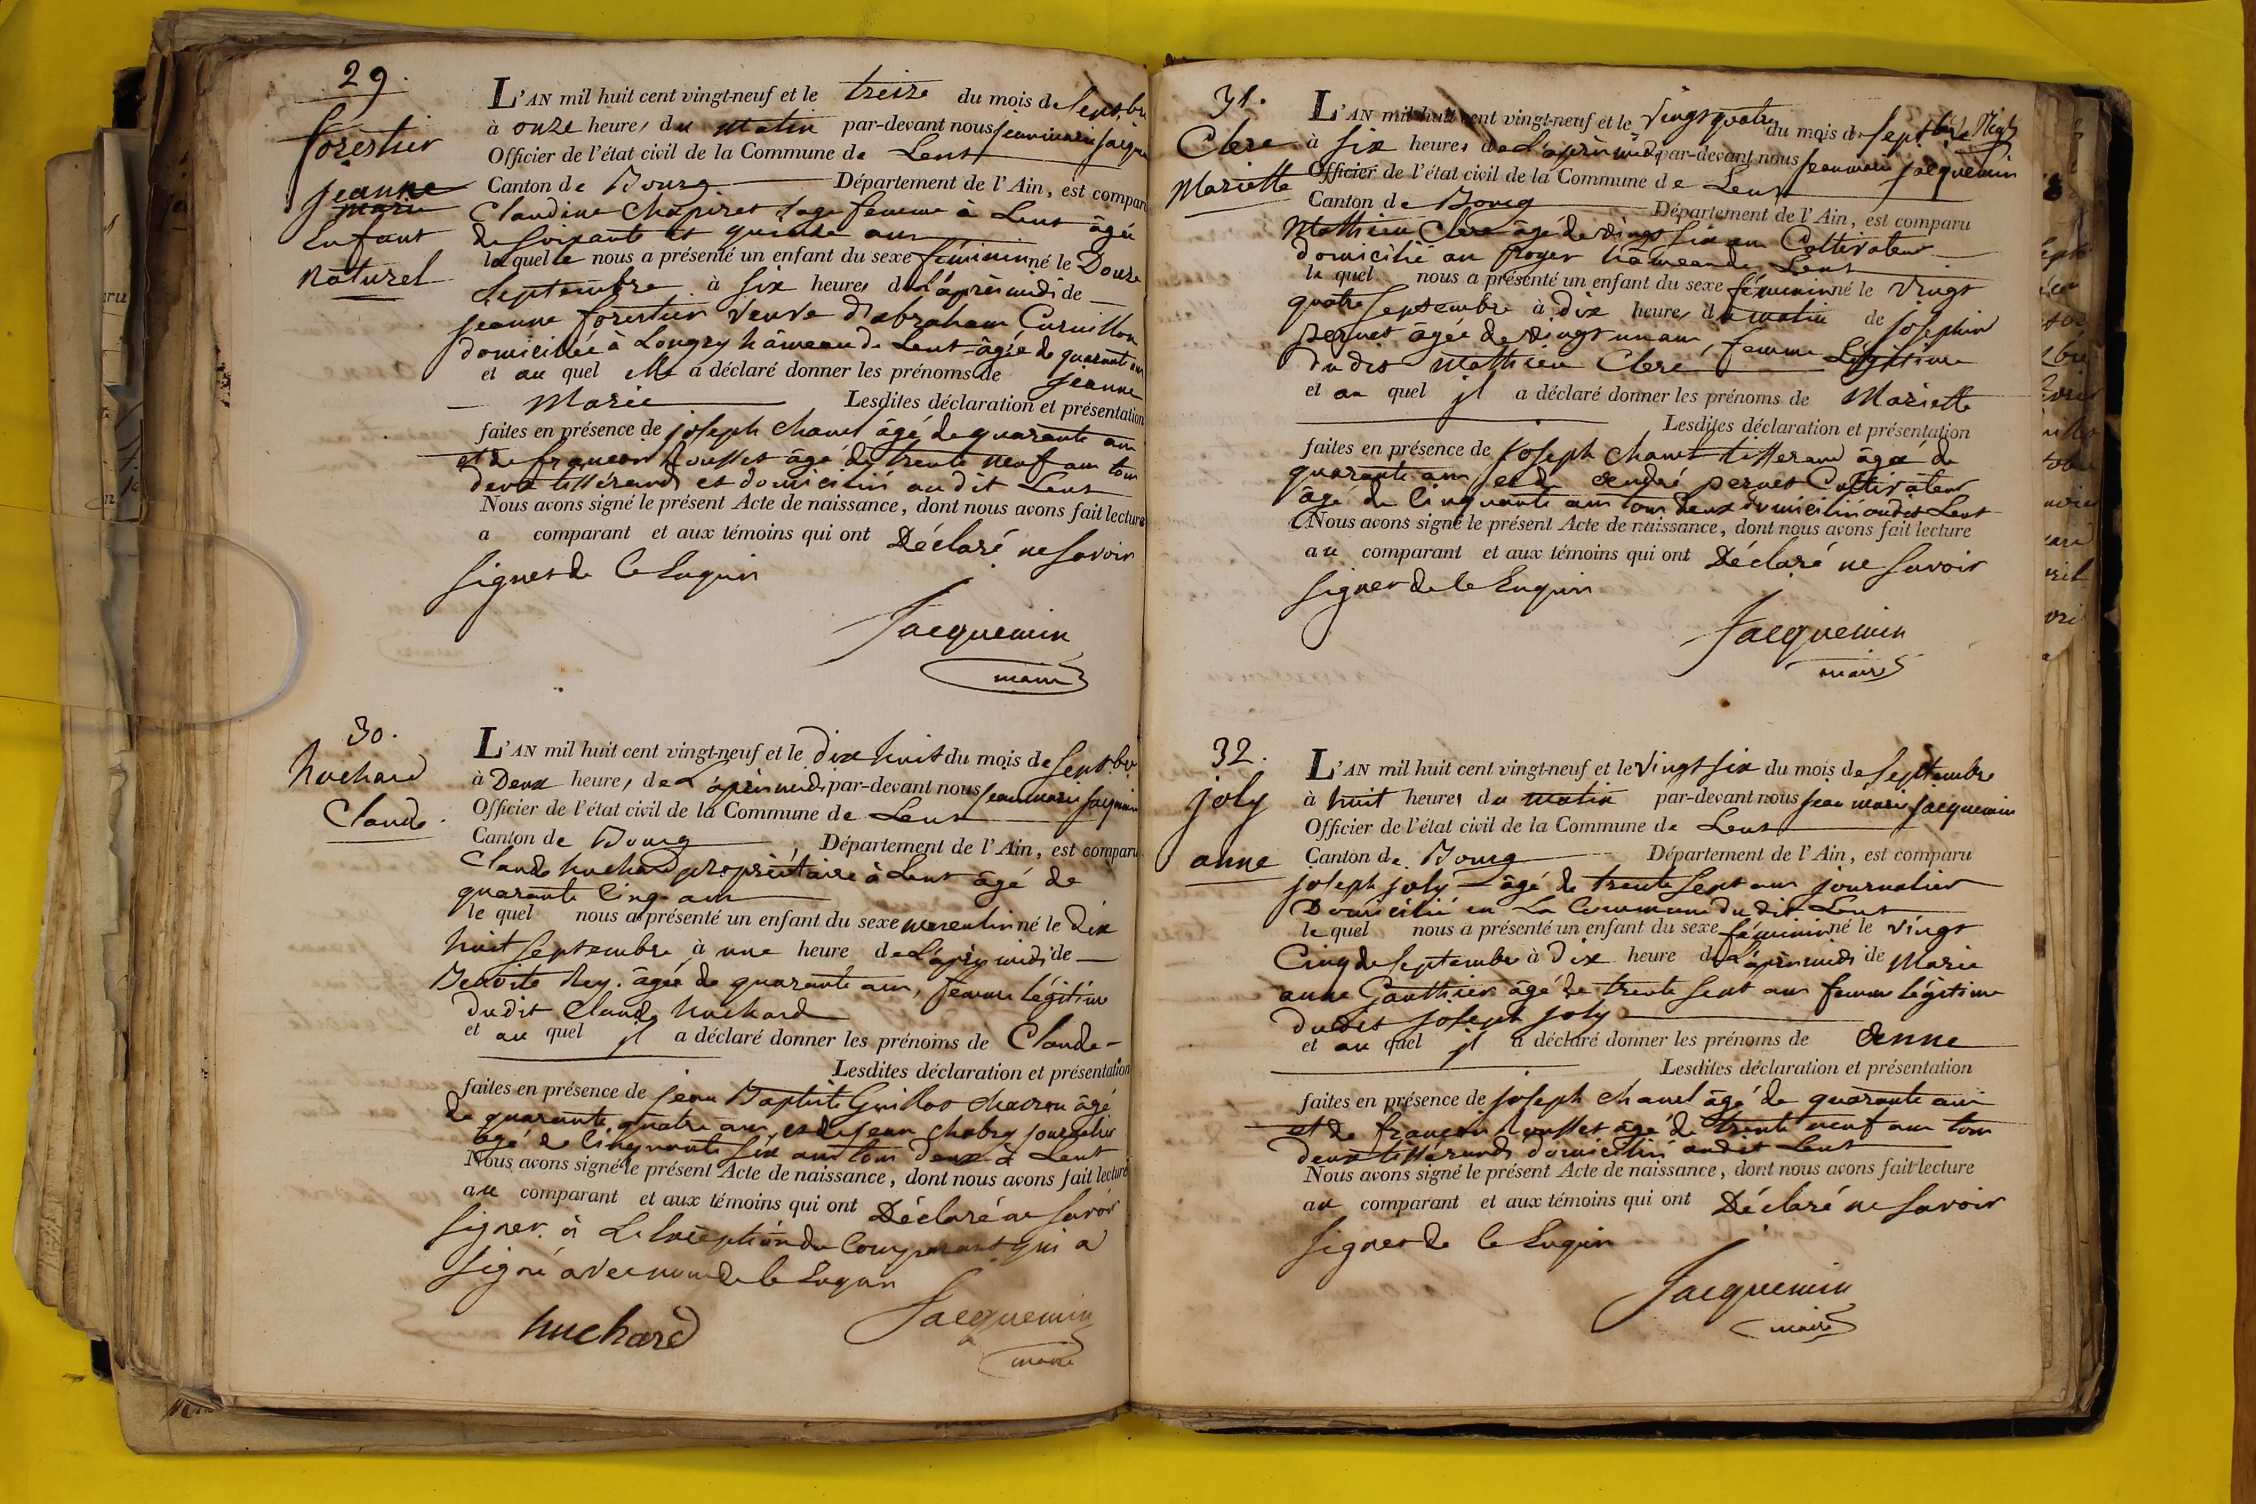 29.
forestier
jeanne
marie
Enfant
naturel
L'AN mil huit cent vingt-neuf et le treize du mois de Sept.bre
à onze heures du matin par-devant nous jean marie jacque
Officier de l'état civil de la Commune de Lent
Canton de Bourg Département de l'Ain, est comparu
Claudine sage femme à Lent âgée
de soixante et quinze ans
laquelle nous a présenté un enfant du sexe féminin né le Douze
Septembre à six heures de L'après midi de
jeanne forestier veuve d'abraham Curnillon
domiciliée à Longry hâmeau de Lent âgée de quarante ans
et au quel elle a déclaré donner les prénoms de jeanne
Marie Lesdites déclaration et présentation
faites en présence de joseph chanel âgé de quarante ans
et de françois Rousset âgé de trente neuf ans tous
deux tisserands et domiciliés au dit Lent
Nous avons signé le présent Acte de naissance, dont nous avons fait lecture
a comparant et aux témoins qui ont Déclaré ne savoir
signer de ce Enquis
Jacquemin
maire
30.
huchard
Claude.
L'AN mil huit cent vingt-neuf et le dix huit du mois de Sept.bre
à Deux heures de L'après midi par-devant nous jean marie jacquemin
Officier de l'état civil de la Commune de Lent
Canton de Bourg Département de l'Ain, est comparu
Claude huchard propriétaire à Lent âgé de
quarante Cinq ans
le quel nous a présenté un enfant du sexe masculin né le Dix
huit Septembre à une heure de L'après midi de
Benoite Rey. âgée de quarante ans, femme légitime
du dit Claude huchard
et au quel il a déclaré donner les prénoms de Claude
Lesdites déclaration et présentation
faites en présence de jean Baptiste Guillot charron âgé
de quarante quatre ans, et de jean chabry journalier
âgé de Cinquante six ans tous deux à Lent
Nous avons signé le présent Acte de naissance, dont nous avons fait lecture
au comparant et aux témoins qui ont Déclaré ne savoir
signer. à L'exception du Comparant qui a
signé avec nous de ce Enquis
huchard
Jacquemin
maire
31.
Clerc
Mariette
L'AN mil huit cent vingt-neuf et le vingt quatre du mois de Sept.bre
à six heures de L'après midi par-devant nous jean marie jacquemin
Officier de l'état civil de la Commune de Lent
Canton de Bourg Département de l'Ain, est comparu
Mathieu Clerc âgé de vingt six ans Cultivateur
domicilié au hâmeau de Lent
le quel nous a présenté un enfant du sexe féminin né le vingt
quatre Septembre à dix heures du matin de Josephine
pernet âgée de vingt un ans, femme Légitime
du dit Mathieu Clerc
et au quel il a déclaré donner les prénoms de Mariette
Lesdites déclaration et présentation
faites en présence de Joseph chanel tisserand âgé de
quarante ans et de André pernet Cultivateur
âgé de Cinquante ans tous deux domiciliés au dit Lent
Nous avons signé le présent Acte de naissance, dont nous avons fait lecture
au comparant et aux témoins qui ont Déclaré ne savoir
signer de ce Enquis
Jacquemin
maire
32.
joly
anne
L'AN mil huit cent vingt-neuf et le vingt six du mois de Septembre
à huit heures du matin par-devant nous jean marie jacquemin
Officier de l'état civil de la Commune de Lent
Canton de Bourg Département de l'Ain, est comparu
joseph joly âgé de trente sept ans journalier
Domicilié en La Commune du dit Lent
le quel nous a présenté un enfant du sexe féminin né le vingt
Cinq de Septembre à Dix heure de L'après midi de Marie
anne Gauthier âgé de trente sept ans femme légitime
du dit joseph joly
et au quel il a déclaré donner les prénoms de Anne
Lesdites déclaration et présentation
faites en présence de joseph chanel âgé de quarante ans
et de françois Rousset âgé de trente neuf ans tous
deux tisserands domiciliés au dit Lent
Nous avons signé le présent Acte de naissance, dont nous avons fait lecture
au comparant et aux témoins qui ont Déclaré ne savoir
signer de ce Enquis
Jacquemin
maire